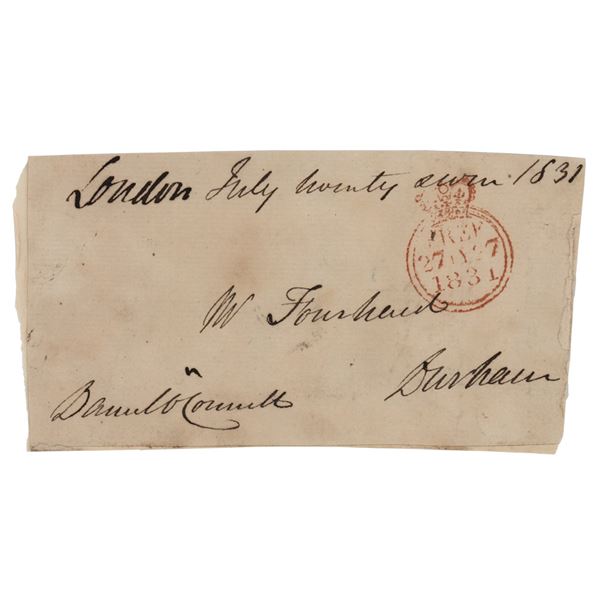 London July twenty seven 1831
FREE
27 JY 27
1831
Mr Fourhead
Daniel O'Connell
Durham